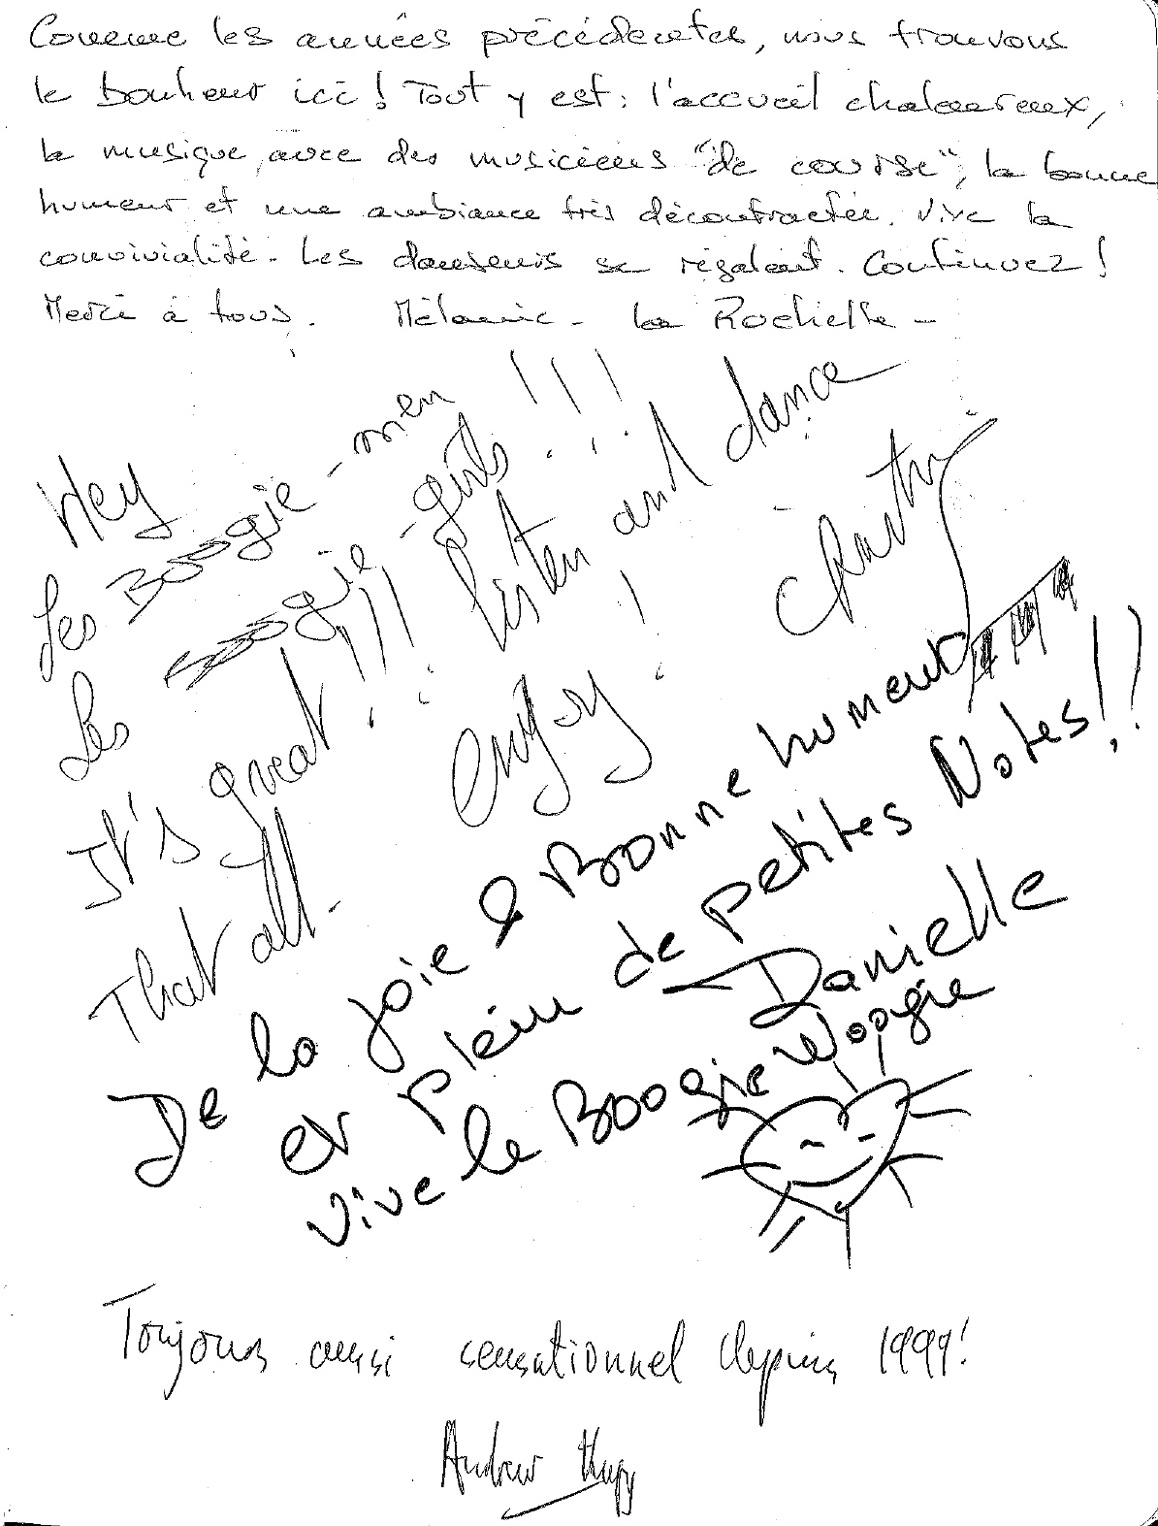 Comme les années précédentes, nous trouvons
le bonheur ici! Tout y est: l'accueil chaleureux,
la musique, avec des musiciens "de course", la bonne
humeur et une ambiance très décontractée. Vive la
convivialité. Les danseurs se régalent. Continuez!
Merci à tous. Mélanie - La Rochelle -
Hey
Les Boogie-men
Les boogie-girls...!!!
It's great!!! listen and dance
That all. enjoy!
De la joie & Bonne humeur
et plein de petites Notes!!
Danielle
Vive le Boogie Woogie
Toujours aussi sensationnel depuis 1999!
Andrew